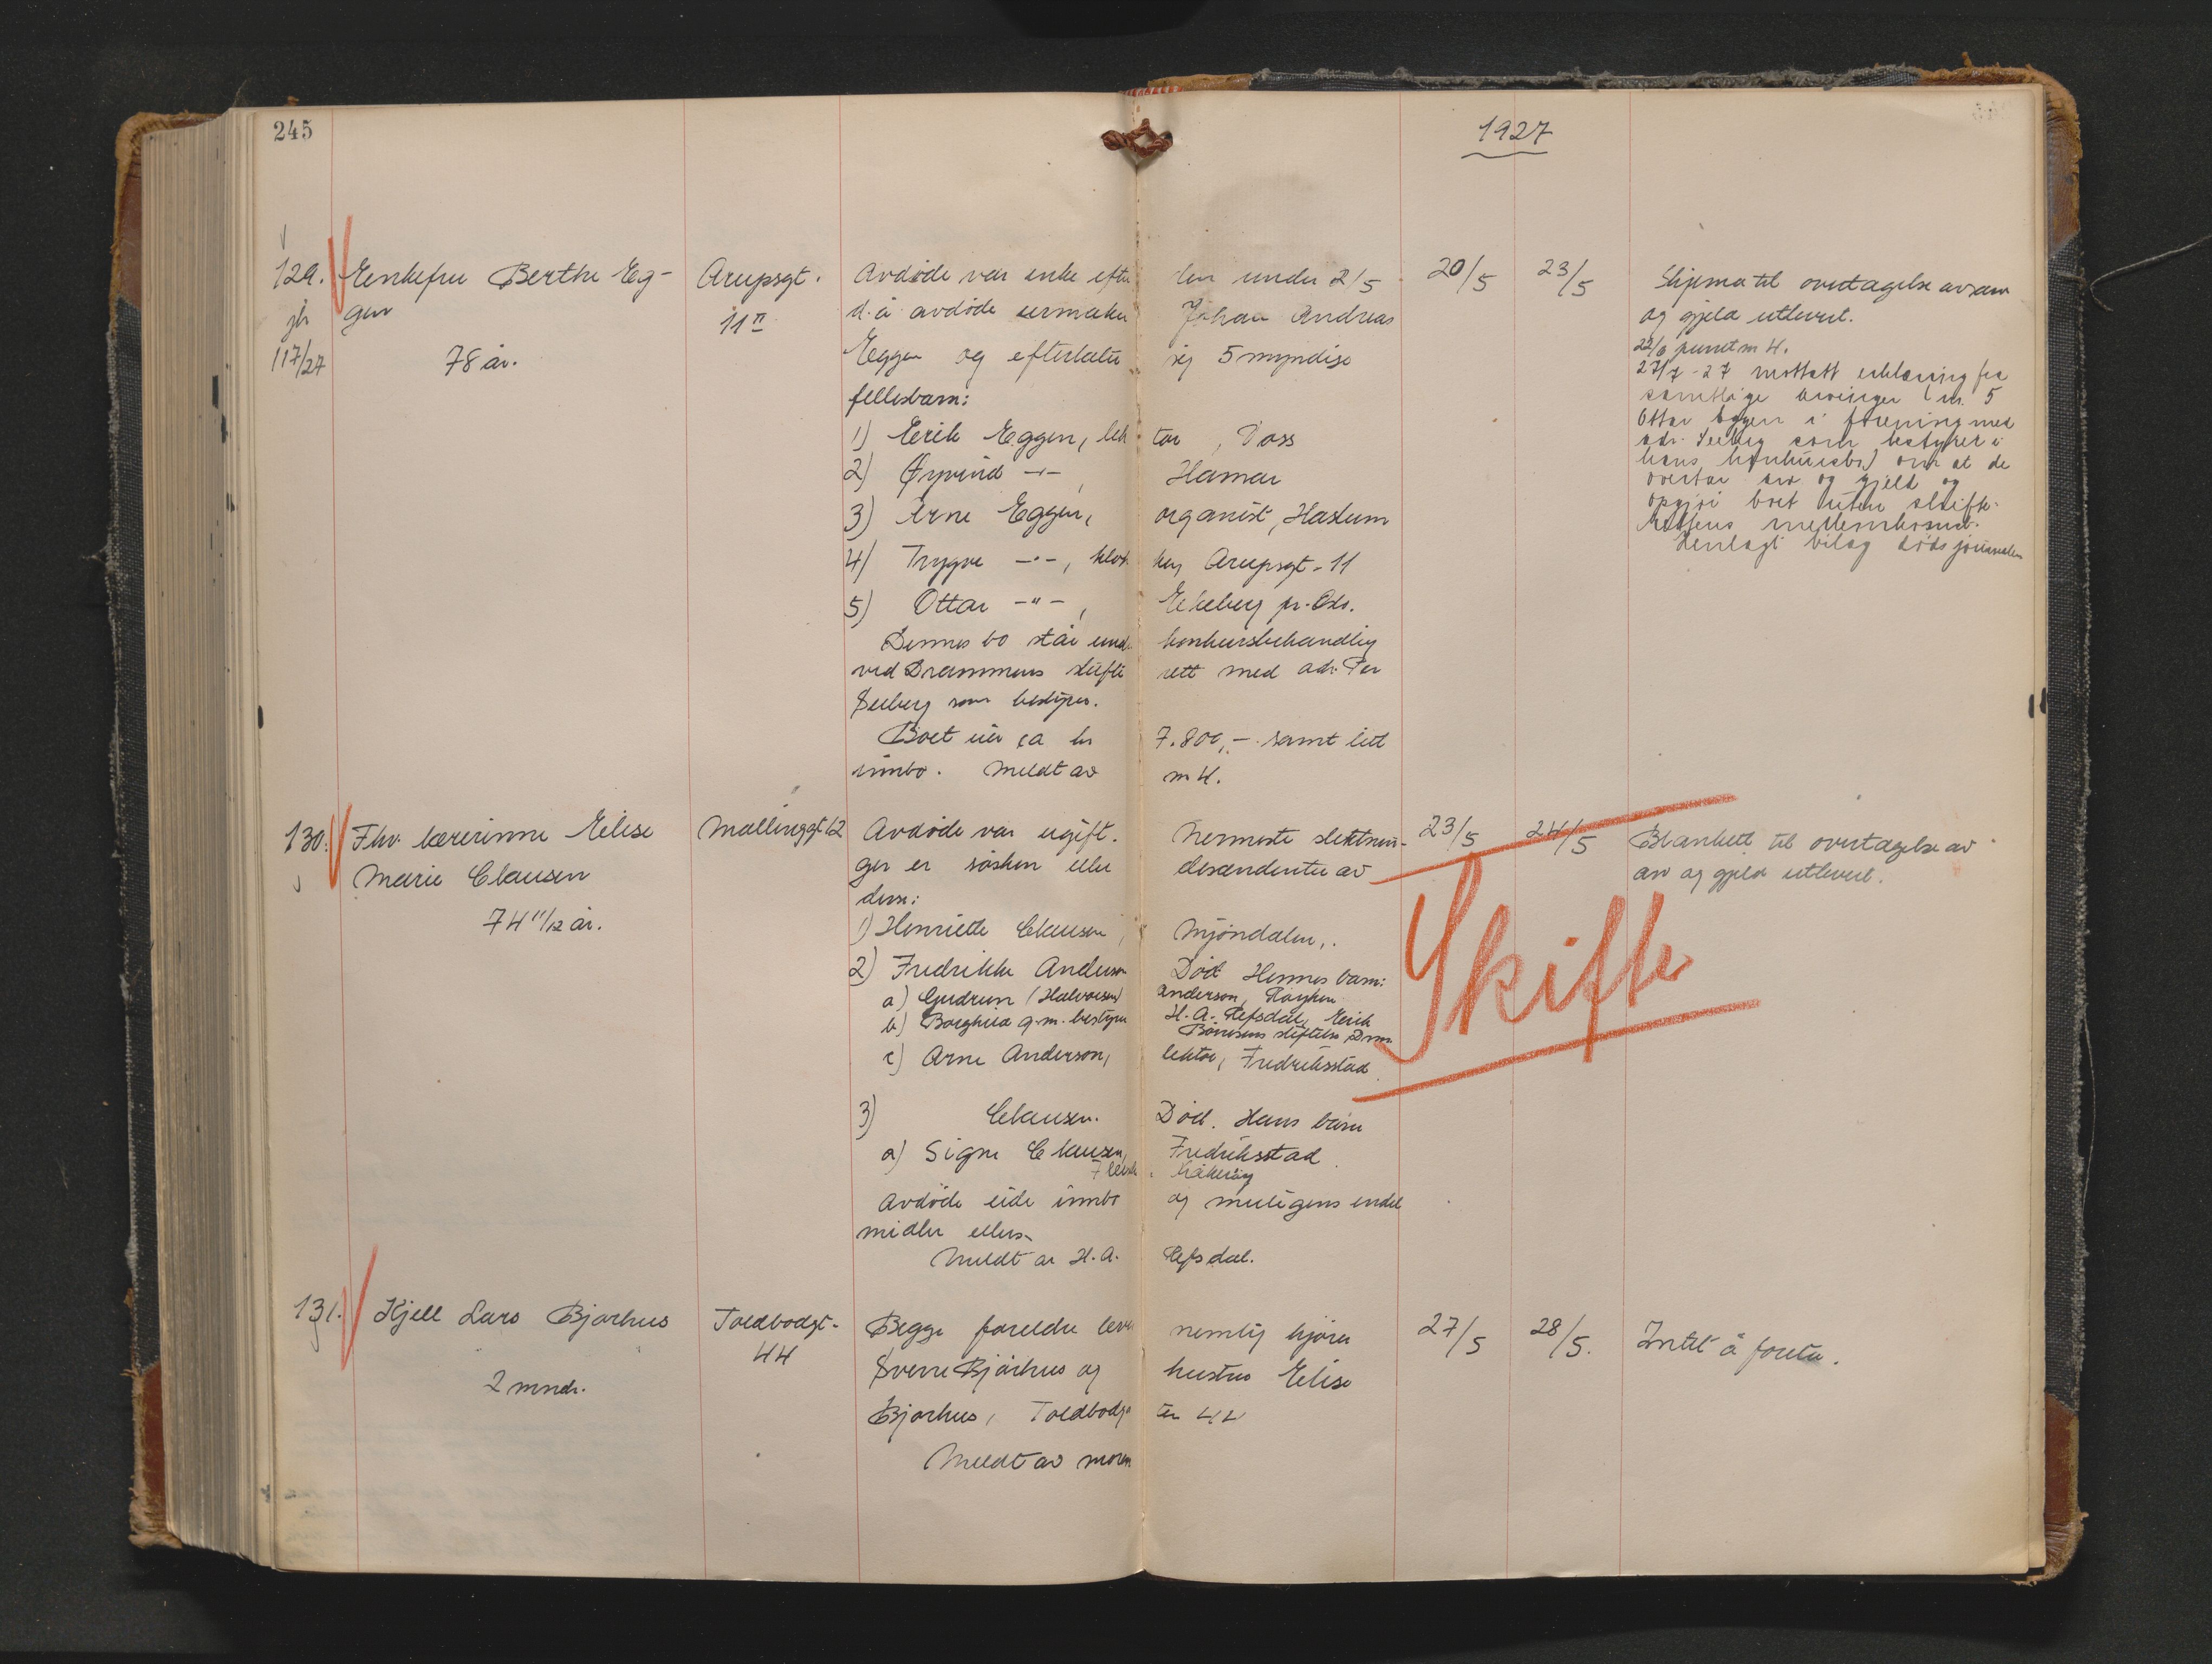 245
1927
129.
jfr
117/27
Enkefru Berthe Eg-
gen
78 år.
Arupsgt.
11 II
Avdøde var enke efter den under 2/5
d. å. avdøde urmaker Johan Andreas
Eggen og efterlater sig 5 myndige
fellesbarn:
1) Erik Eggen, lektor, Voss
2) Øyvind -"-, Hamar
3) Arne Eggen, organist, Haslum
4) Trygve -"-, Arupsgt. 11
5) Ottar -"-, Ekeberg pr. Oslo.
Dennes bo står under konkursbehandling
ved Drammens skifterett med adv. Per
Seeberg som bestyrer.
Boet eier ca kr 7.800,- samt litt
innbo. Meldt av m 4.
20/5
23/5
Skjema til overtagelse av arv
og gjeld utlevert.
22/6 purret m 4.
27/7-27 mottatt erklæring fra
samtlige arvinger (nr. 5
Ottar Eggen i forening med
adv. Seeberg som bestyrer i
hans konkursbo) om at de
overtar arv og gjeld og
opgjør boet uten skifte-
rettens mellemkomst.
Henlagt bilag dødsjournalen
130.
Fhv. lærerinne Elise
Marie Clausen
74 11/12 år.
Mallinggt. 12
Avdøde var ugift. Nermeste slektnin-
ger er søsken eller descendenter av
disse:
1) Henriette Clausen, Mjøndalen,.
2) Fredrikke Anderson Død Hennes barn:
a) Gudrun (Halvorsen) Anderson, Røyken
b) Borghild g. m. bestyrer H. A. Refsdal, Erik
Børresens stiftelse Drm
c) Arne Anderson, lektor, Fredriksstad
3) Clausen. Død. Hans barn
a) Signe Clausen, Fredriksstad
Avdøde eide innbo og muligens endel
midler ellers.
Meldt av H. A. Refsdal.
23/5
24/5
Blankett til overtagelse av
arv og gjeld utlevert.
Skifte
131.
Kjell Lars Bjørhus
2 mndr.
Toldbodgt.
44
Begge foreldre lever nemlig kjører
Sverre Bjørhus og hustru Elise
Bjørhus, Toldbodgaten 44
Meldt av moren
27/5
28/5.
Intet å foreta.